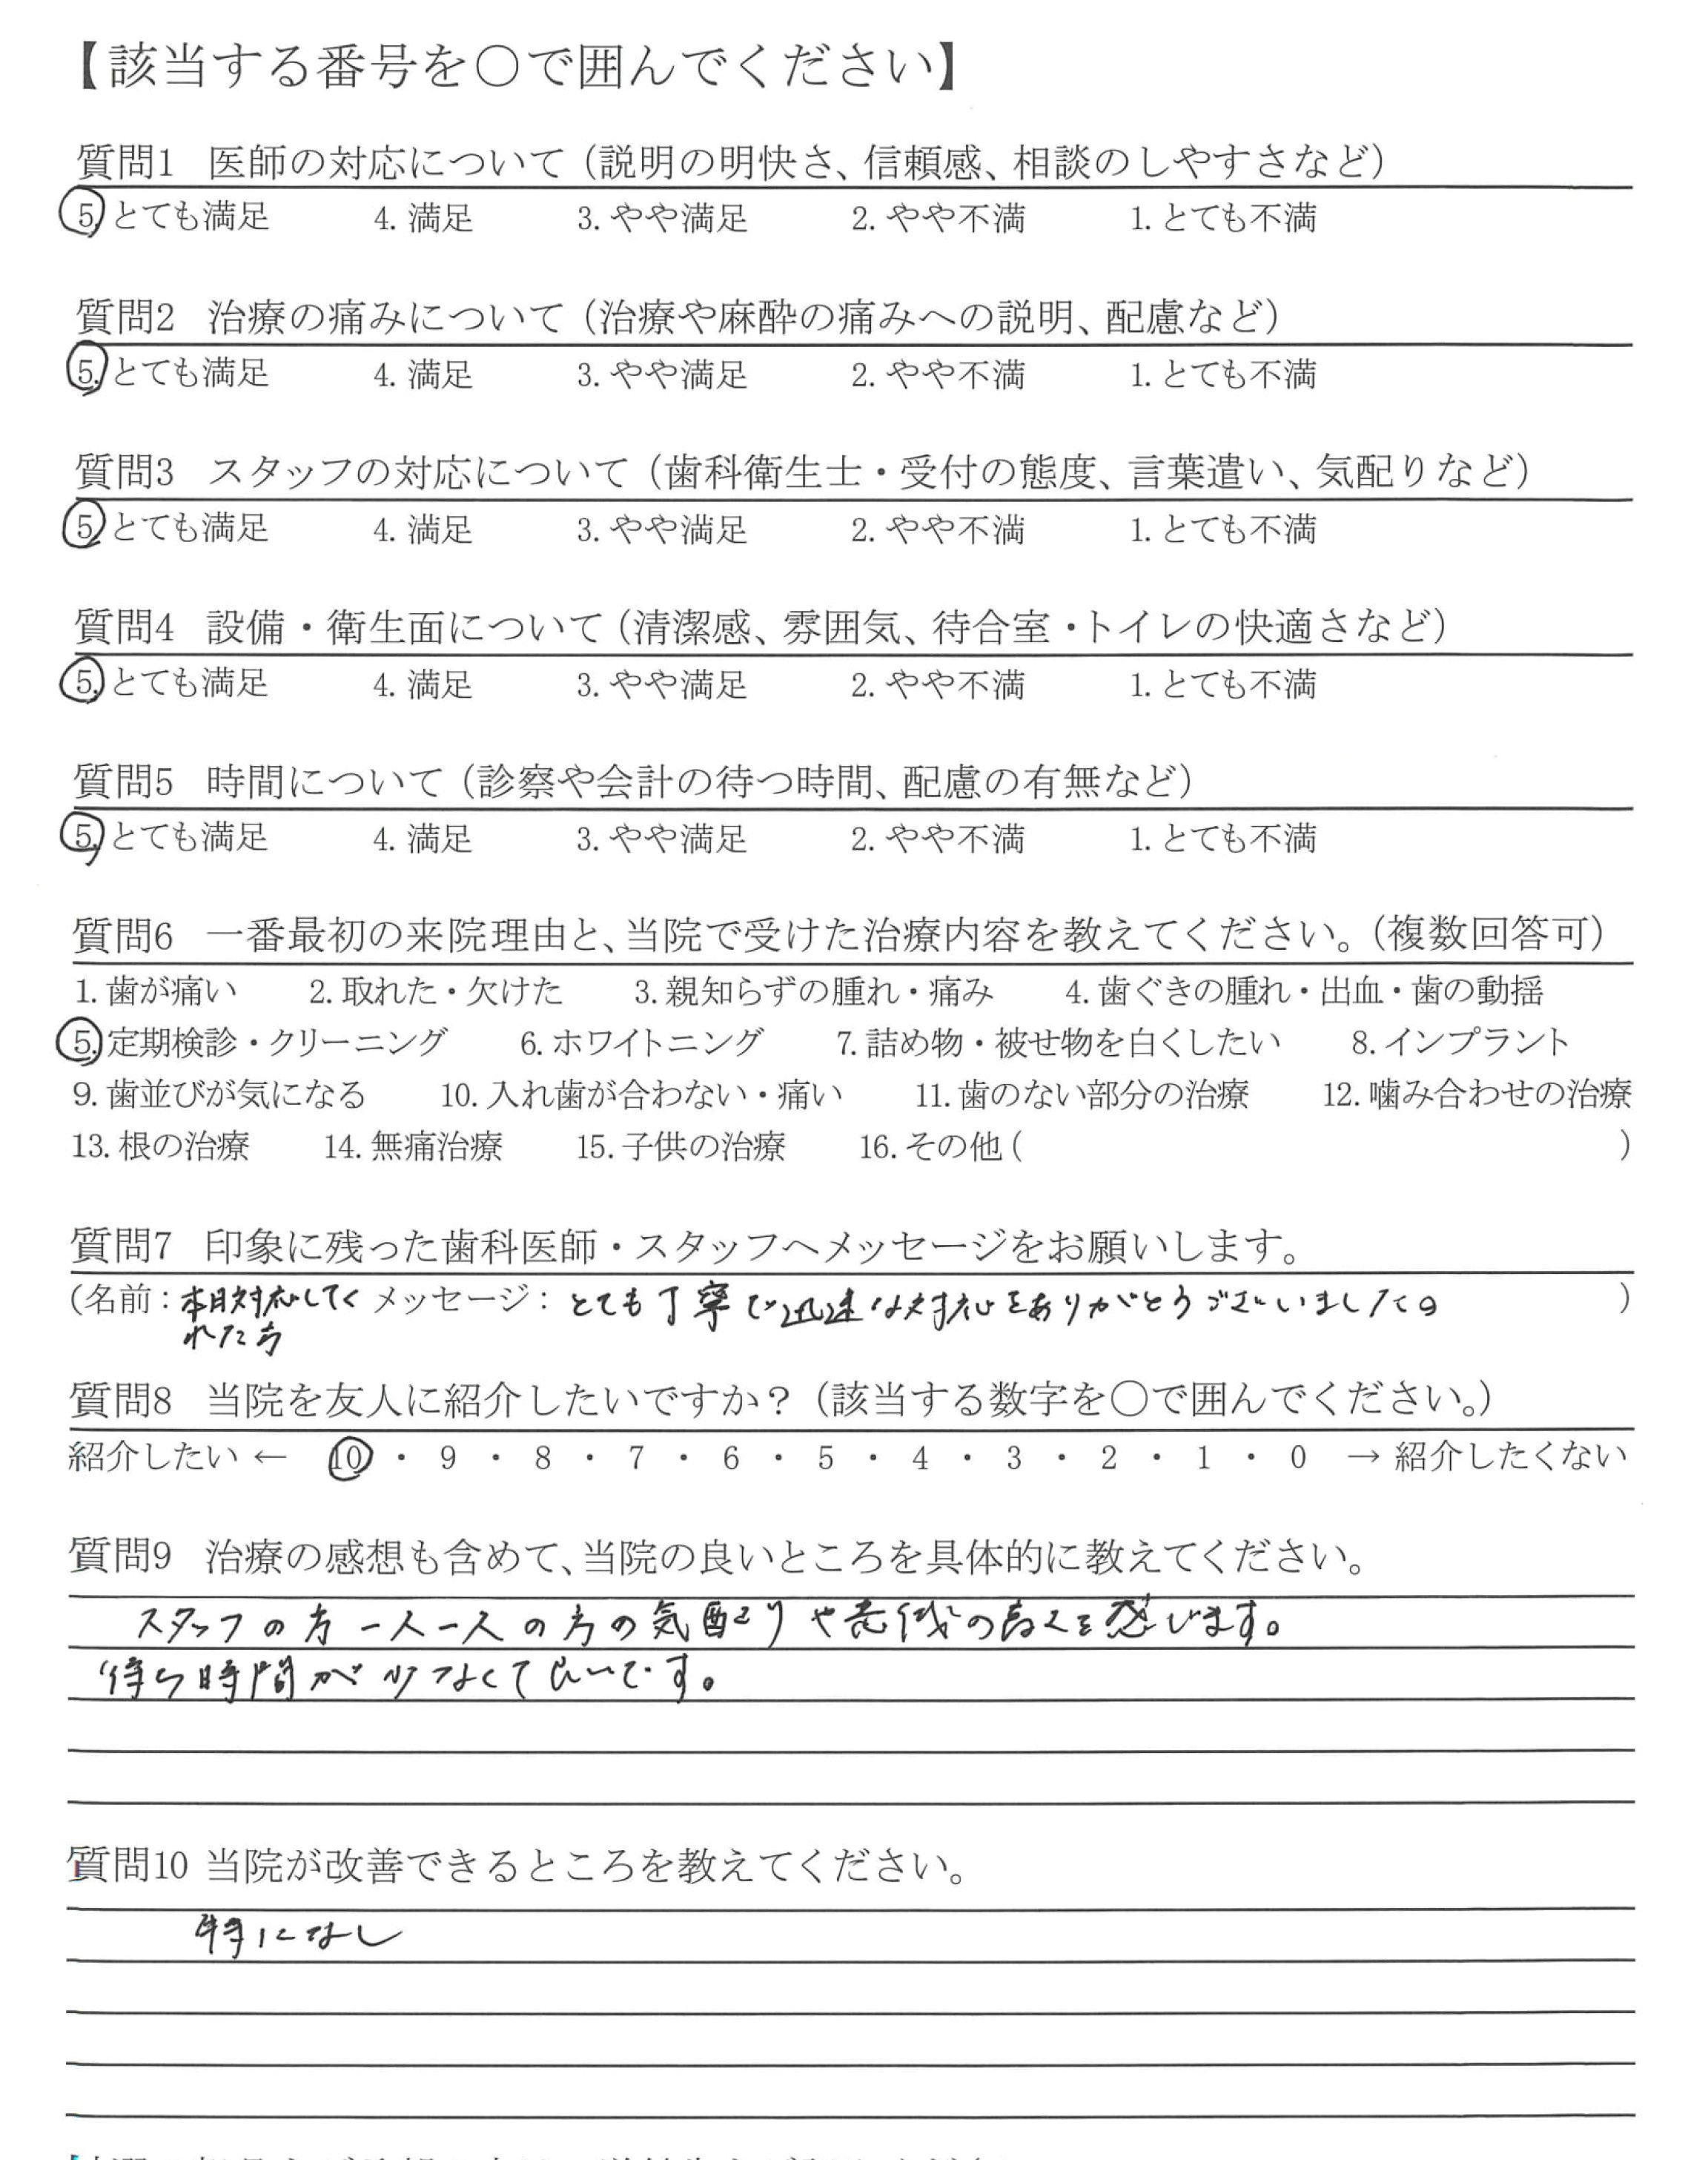 【該当する番号を〇で囲んでください】
質問1 医師の対応について（説明の明快さ、信頼感、相談のしやすさなど）
5. とても満足 4. 満足 3. やや満足 2. やや不満 1. とても不満
質問2 治療の痛みについて（治療や麻酔の痛みへの説明、配慮など）
5. とても満足 4. 満足 3. やや満足 2. やや不満 1. とても不満
質問3 スタッフの対応について（歯科衛生士・受付の態度、言葉遣い、気配りなど）
5. とても満足 4. 満足 3. やや満足 2. やや不満 1. とても不満
質問4 設備・衛生面について（清潔感、雰囲気、待合室・トイレの快適さなど）
5. とても満足 4. 満足 3. やや満足 2. やや不満 1. とても不満
質問5 時間について（診察や会計の待つ時間、配慮の有無など）
5. とても満足 4. 満足 3. やや満足 2. やや不満 1. とても不満
質問6 一番最初の来院理由と、当院で受けた治療内容を教えてください。（複数回答可）
1. 歯が痛い 2. 取れた・欠けた 3. 親知らずの腫れ・痛み 4. 歯ぐきの腫れ・出血・歯の動揺
5. 定期検診・クリーニング 6. ホワイトニング 7. 詰め物・被せ物を白くしたい 8. インプラント
9. 歯並びが気になる 10. 入れ歯が合わない・痛い 11. 歯のない部分の治療 12. 噛み合わせの治療
13. 根の治療 14. 無痛治療 15. 子供の治療 16. その他（ ）
質問7 印象に残った歯科医師・スタッフへメッセージをお願いします。
（名前：本日対応してく メッセージ：とても丁寧で迅速な対応をありがとうございました。）
れた方
質問8 当院を友人に紹介したいですか？（該当する数字を〇で囲んでください。）
紹介したい ← 10 ・ 9 ・ 8 ・ 7 ・ 6 ・ 5 ・ 4 ・ 3 ・ 2 ・ 1 ・ 0 → 紹介したくない
質問9 治療の感想も含めて、当院の良いところを具体的に教えてください。
スタッフの方一人一人の方の気配りや意識の高さを感じます。
待ち時間が少なくて良いです。
質問10 当院が改善できるところを教えてください。
特になし